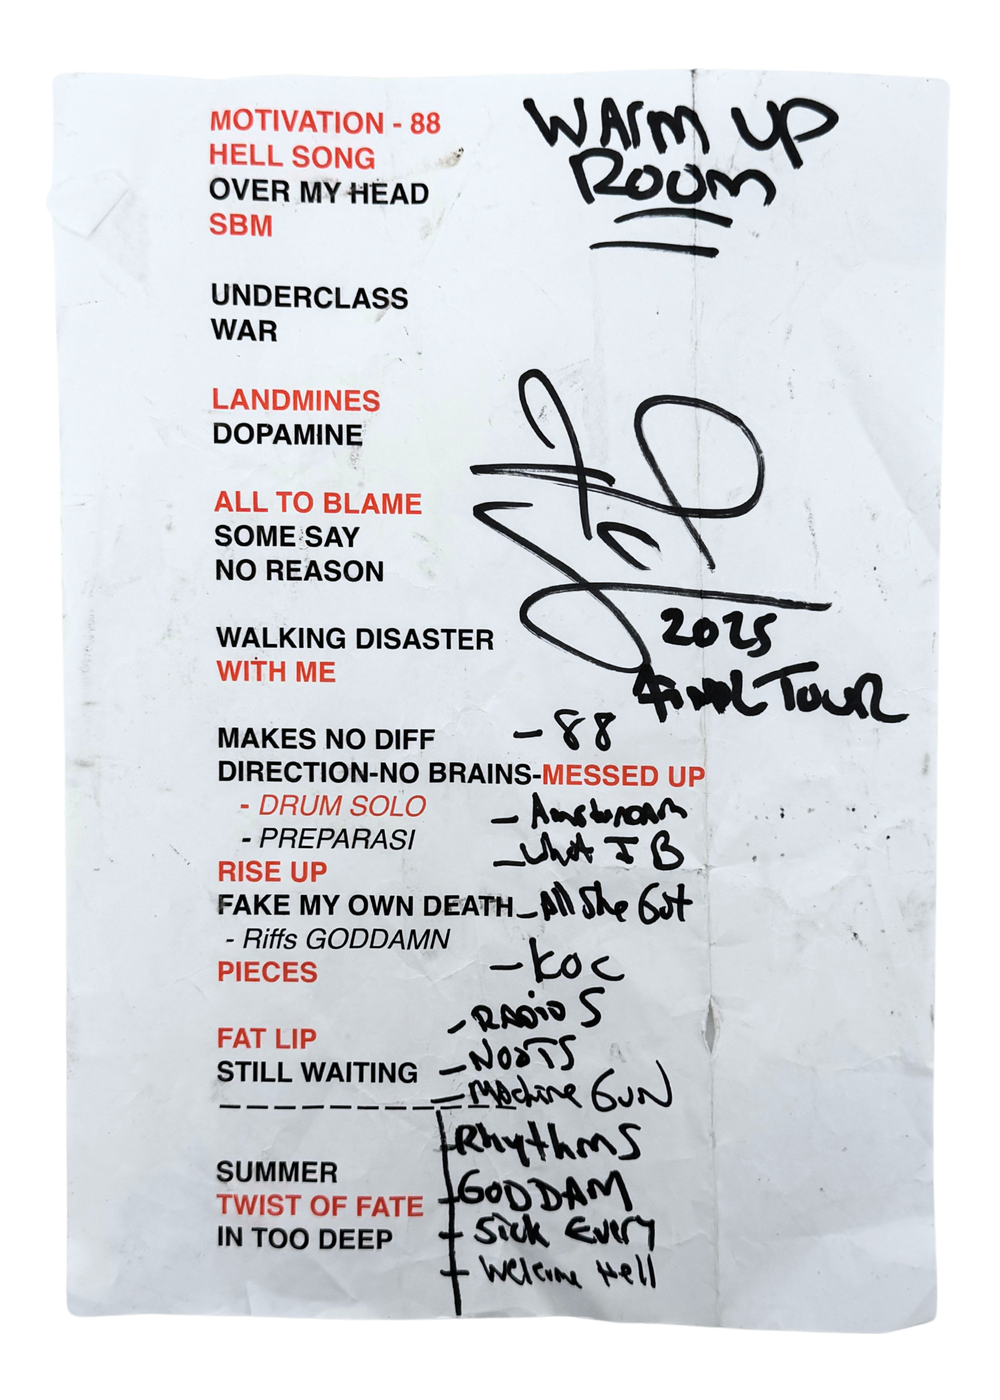 WARM UP
ROOM
MOTIVATION - 88
HELL SONG
OVER MY HEAD
SBM
UNDERCLASS
WAR
LANDMINES
DOPAMINE
ALL TO BLAME
SOME SAY
NO REASON
WALKING DISASTER
WITH ME
2025
FINAL TOUR
MAKES NO DIFF - 88
DIRECTION-NO BRAINS-MESSED UP
- DRUM SOLO
- Amsterdam
- PREPARASI
- What I B
RISE UP
FAKE MY OWN DEATH - All She Got
- Riffs GODDAMN
PIECES - KOC
- RADIO S
FAT LIP
- NOOTS
STILL WAITING
- Machine GUN
- RhythmS
SUMMER
- GODDAM
TWIST OF FATE
- Sick EVERY
IN TOO DEEP
- Welcome Hell